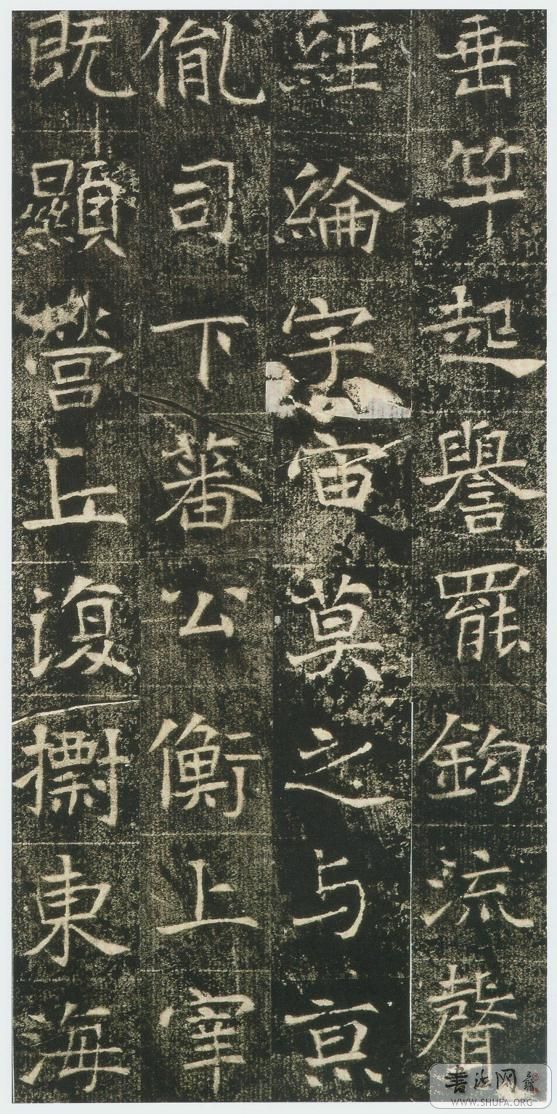 垂竿起譽罷鈎流聲
經綸宇宙莫之与京
胤司下蕃公衡上宰
既顯營丘復摽東海
書法网
WWW.SHUFA.ORG